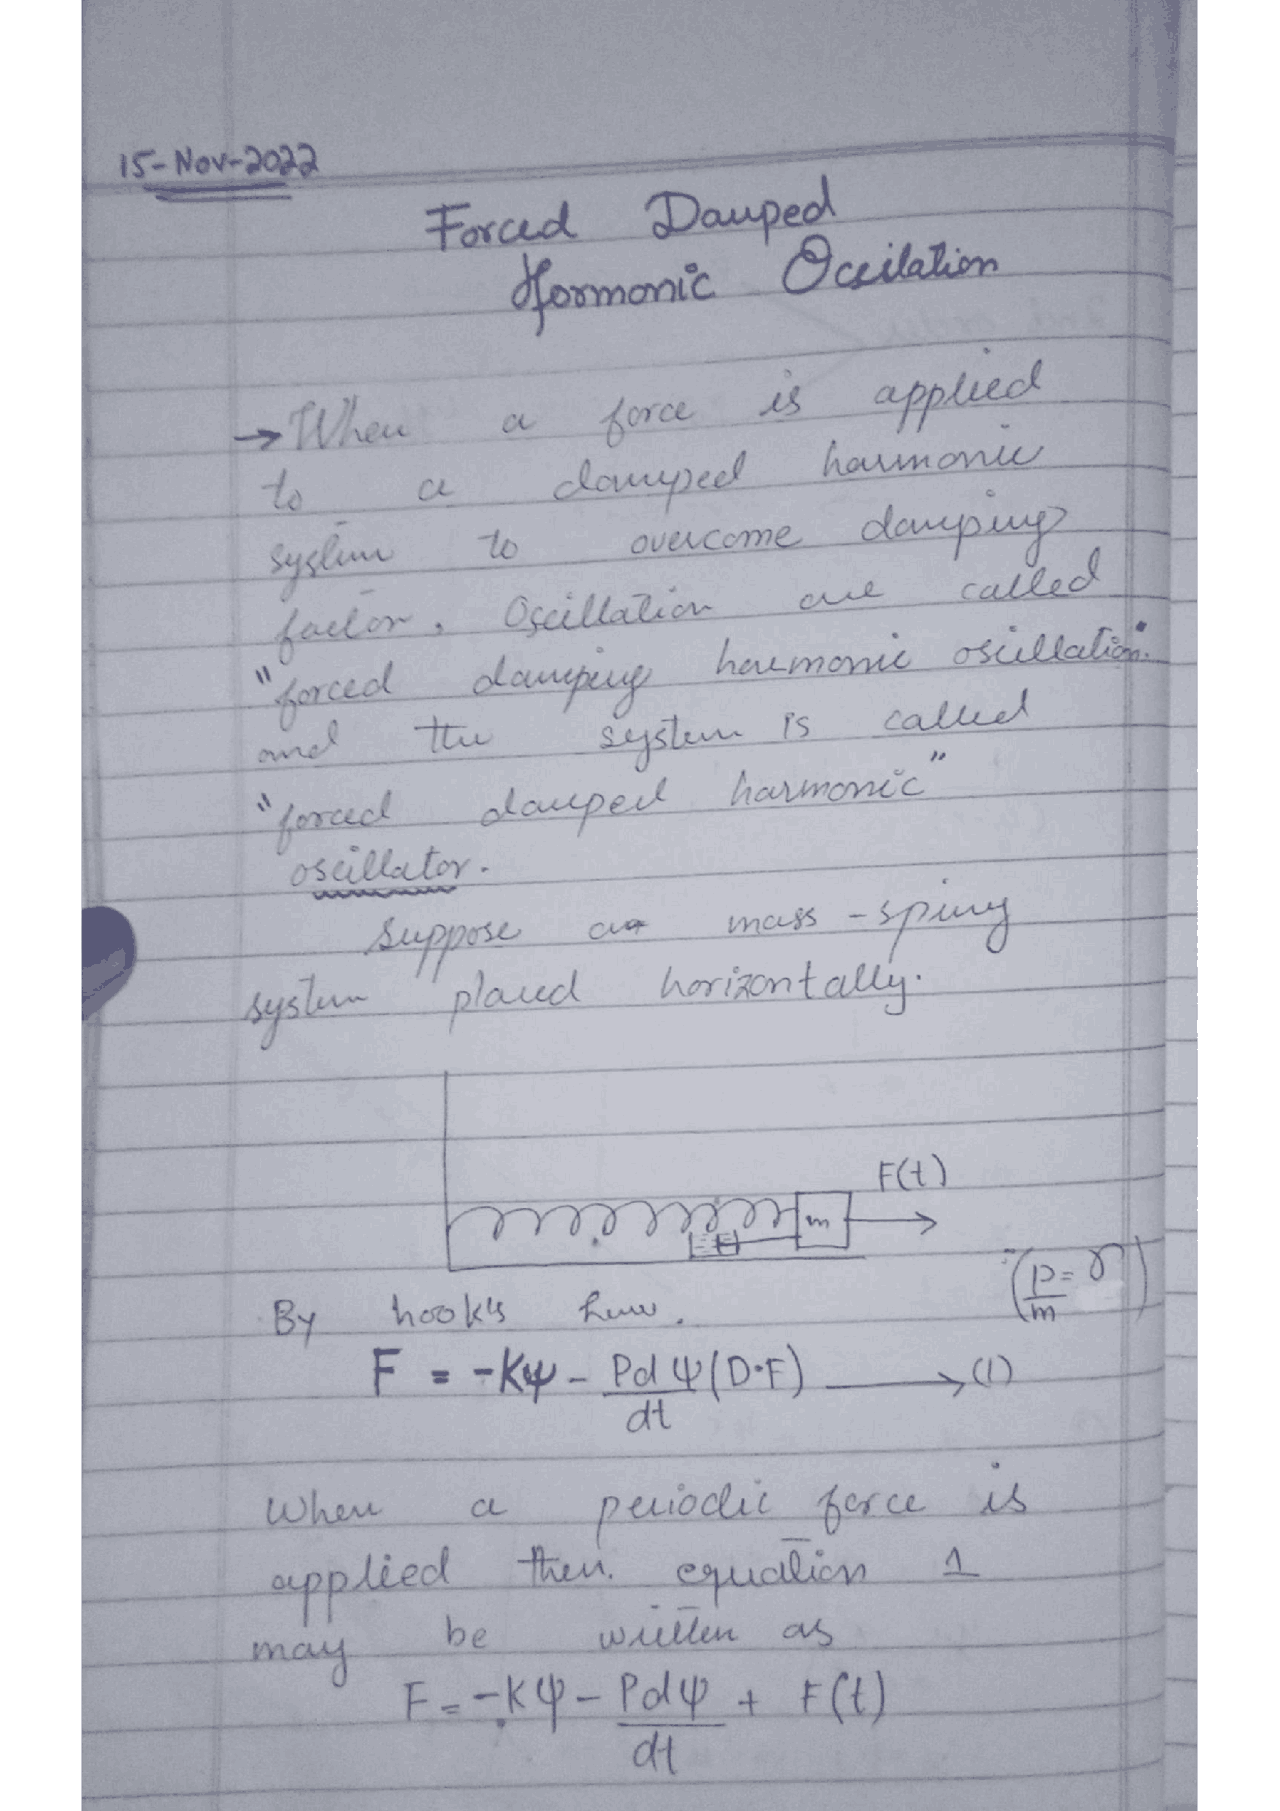 15-Nov-2022
Forced Damped
Hormonic Occilation
→ When a force is applied
to a damped harmonic
system to overcome damping
factor, Oscillation are called
"forced damping harmonic oscillation"
and the system is called
"forced damped harmonic"
oscillator.
Suppose a mass-spring
system placed horizontally.
F(t)
m
(P/m = γ)
By hook's law,
F = -Kψ - Pdψ/dt (D.F) → (1)
When a periodic force is
applied then equation 1
may be written as
F = -Kψ - Pdψ/dt + F(t)